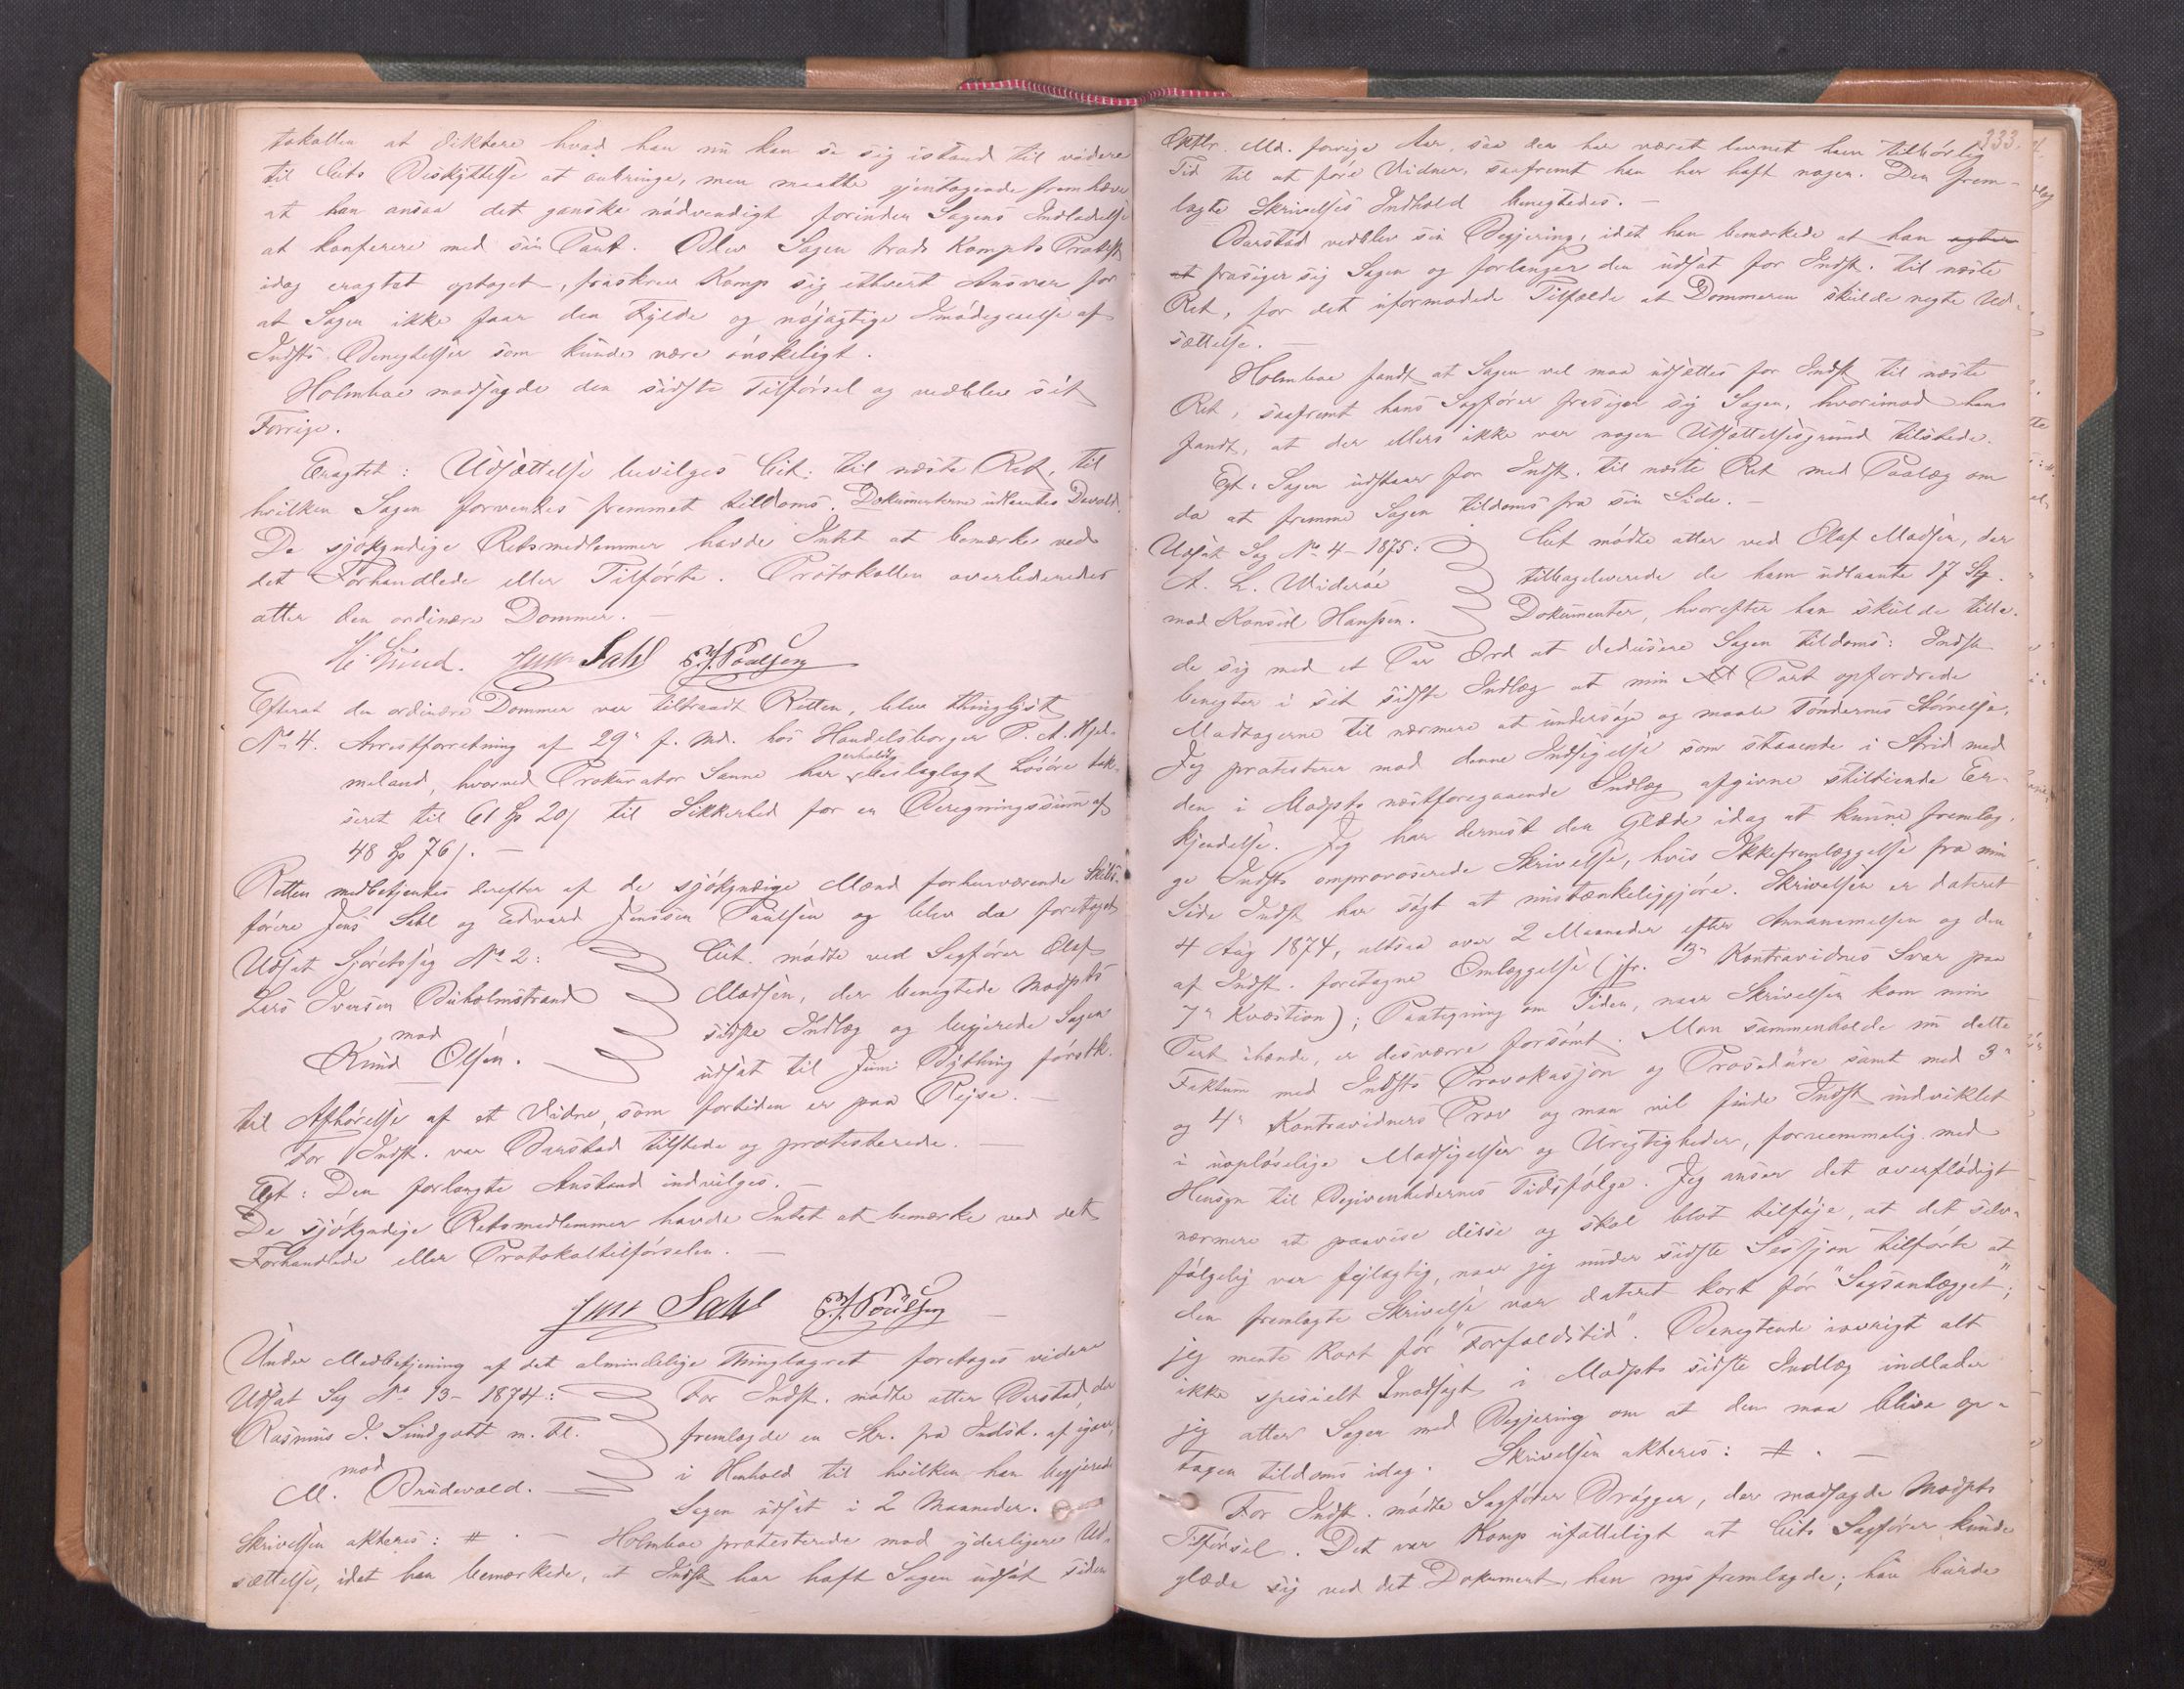 tokollen at diktere hvad han nu kan se sig istand til videre
til Cits Beskyttelse at anbringe, men maatte gjentagende fremhæve
at han ansaa det ganske nødvendigt forinden Sagens Indladelse
at konferere med sin Part. Blev Sagen trods Kompts Protest
idag eragtet optaget, fraskrev Komp sig ethvert Ansvar for
at Sagen ikke faar den Fylde og nøjagtige Imødegaaelse af
Indsts Benegtelser som kunde være ønskeligt.
Holmboe modsagde den sidste Tilførsel og vedblev sit
Forrige.
Eragtet: Udsættelse bevilges Cit. til næste Ret, til
hvilken Sagen forventes fremmet tildoms. Dokumenterne udlaantes Devold.
De sjøkyndige Retsmedlemmer havde Intet at bemærke ved
det Forhandlede eller Tilførte. Protokollen overleveredes
atter den ordinære Dommer. —
Jens Sahl E. J. Poulsen
Efterat den ordinære Dommer var tiltraadt Retten, blev thinglyst
No 4. Arrestforretning af 29de f. Md. hos Handelsborger P. A. Hjel-
meland, hvorved Prokurator Sanne har erholdt beslaglagt Løsøre tak-
seret til 61 Sp 20 s til Sikkerhed for en Beregningssum af
48 Sp 76 s. —
Retten medbetjentes derefter af de sjøkyndige Mænd forhenværende Skibs-
førere Jens Sahl og Edvard Jenssen Poulsen og blev da foretaget
Udsat Sjøretssag No 2: Cit. mødte ved Sagfører Olaf
Lars Iversen Buholmstrand Madsen, der benegtede Modpts
mod sidste Indlæg og begjerede Sagen
Knud Olsen. udsat til Juni Bything førstk.
til Afhørelse af et Vidne, som fortiden er paa Rejse. —
For Indst. var Barstad tilstede og protesterede. —
Egt: Den forlangte Anstand indvilges. —
De sjøkyndige Retsmedlemmer havde Intet at bemærke ved det
Forhandlede eller Protokoltilførselen. —
Jens Sahl E. J. Poulsen
Under Medbetjening af det almindelige Thinglagret foretages videre
Udsat Sag No 13- 1874: For Indst. mødte atter Barstad, der
Rasmus J. Sundgott m. Fl. fremlagde en Skr. fra Indst. af igaar,
mod i Henhold til hvilken han begjerede
M. Brudevold. — Sagen udsat i 2 Maaneder.
Skrivelsen akteres: # . — Holmboe protesterede mod yderligere Ud-
sættelse, idet han bemærkede, at Indst har haft Sagen udsat siden
333.
Oktbr. Md. forrige Aar, saa der har været levnet ham tilbørlig
Tid til at føre Vidner, saafremt han har haft nogen. Den frem-
lagte Skrivelses Indhold benegtedes. —
Barstad vedblev sin Begjering, idet han bemærkede at han agter
at frasiger sig Sagen og forlanger den udsat for Indst. til næste
Ret, for det uformodede Tilfælde at Dommeren skulde negte Ud-
sættelse. —
Holmboe fandt at Sagen vel maa udsættes for Indst til næste
Ret, saafremt hans Sagfører frasiger sig Sagen, hvorimod han
fandt, at der ellers ikke var nogen Udsættelsesgrund tilstede.
Egt: Sagen udstaar for Indst. til næste Ret med Paalæg om
da at fremme Sagen tildoms fra sin Side. —
Udsat Sag No 4- 1875: Cit mødte atter ved Olaf Madsen, der
A. L. Widerøe tilbageleverede de ham udlaante 17 St.
mod Konsul Hanssen. Dokumenter, hvorefter han skulde tilla-
de sig med et Par Ord at dedusere Sagen tildoms: Indst
benegter i sit sidste Indlæg at min Part opfordrede
Modtagerne til nærmere at undersøge og maale Tøndernes Størrelse.
Jeg protesterer mod denne Indsigelse som staaende i Strid med
den i Modpts næstforegaaende Indlæg afgivne stiltiende Er-
kjendelse. Jeg har dernæst den Glæde idag at kunne fremlæg-
ge Indsts omprovoserede Skrivelse, hvis Ikkefremlæggelse fra min
Side Indst har søgt at mistænkeliggjøre. Skrivelsen er dateret
4 Aug 1874, altsaa over 2 Maaneder efter Annammelsen og den
af Indst. foretagne Omlæggelse (jfr. 3die Kontravidnes Svar paa
7de Kvæstion); Paategning om Tiden, naar Skrivelsen kom min
Part ihænde, er desværre forsømt. Man sammenholde nu dette
Faktum med Indsts Provokasjon og Prosedure samt med 3die
og 4de Kontravidners Prov og man vil finde Indst indviklet
i uopløselige Modsigelser og Urigtigheder, fornemmelig med
Hensyn til Begivenhedernes Tidsfølge. Jeg anser det overflødigt
nærmere at paavise disse og skal blot tilføje, at det selv-
følgelig var fejlagtig, naar jeg under sidste Sessjon tilførte at
den fremlagte Skrivelse var dateret kort før "Sagsanlægget";
jeg mente kort før "Forfaldstid". Benegtende iøvrigt alt
ikke spesielt Imødsagt i Modpts sidste Indlæg indlader
jeg atter Sagen med Begjering om at den maa blive op-
tagen tildoms idag. Skrivelsen akteres: # . —
For Indst. mødte Sagfører Brøgger, der modsagde Modpts
Tilførsel. Det var Komp ufatteligt at Cits Sagfører kunde
glæde sig ved det Dokument, han nys fremlagde; han burde